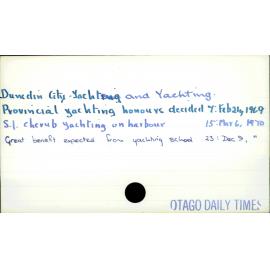 Dunedin City - Yachting and Yachting.
Provincial yachting honours decided 7: Feb 24, 1969
S.I. cherub yachting on harbour 15: Mar 6, 1970
Great benefit expected from yachting school 23: Dec 9, "
OTAGO DAILY TIMES